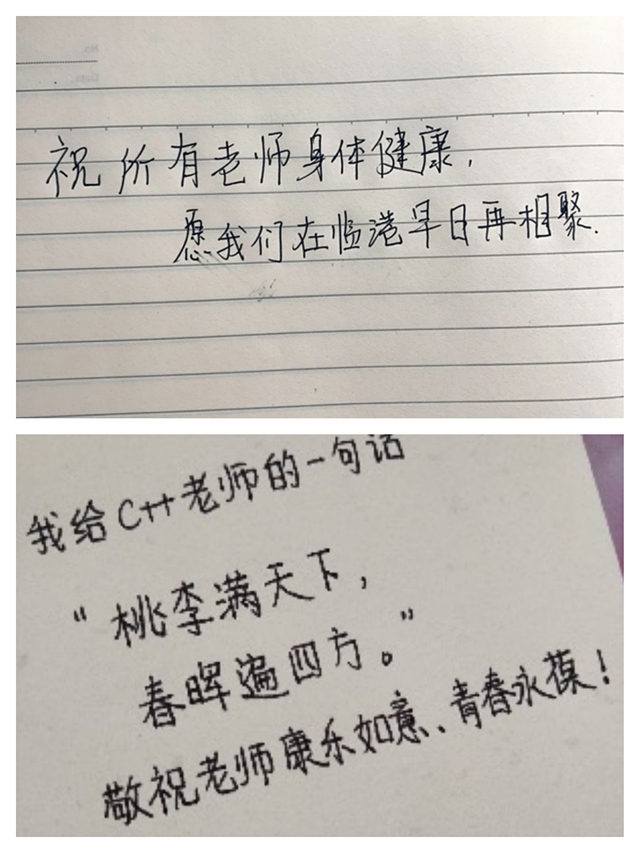 祝所有老师身体健康,
愿我们在临港早日再相聚.
我给C++老师的一句话
“桃李满天下,
春晖遍四方。”
敬祝老师康乐如意、青春永葆!